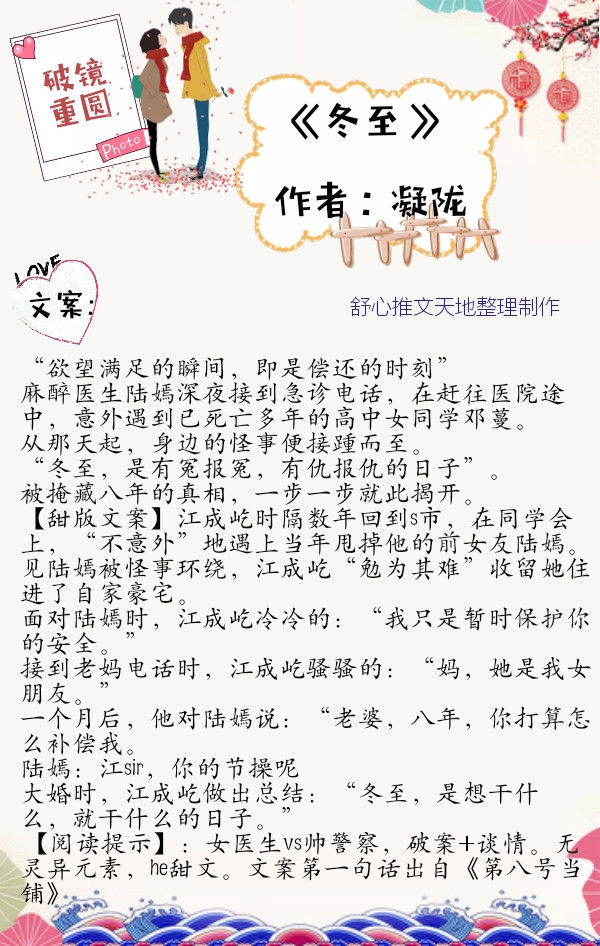 破镜
重圆
Photo
《冬至》
作者：凝陇
LOVE
文案：
舒心推文天地整理制作
“欲望满足的瞬间，即是偿还的时刻”
麻醉医生陆嫣深夜接到急诊电话，在赶往医院途
中，意外遇到已死亡多年的高中女同学邓蔓。
从那天起，身边的怪事便接踵而至。
“冬至，是有冤报冤，有仇报仇的日子”。
被掩藏八年的真相，一步一步就此揭开。
【甜版文案】江成屹时隔数年回到s市，在同学会
上，“不意外”地遇上当年甩掉他的前女友陆嫣。
见陆嫣被怪事环绕，江成屹“勉为其难”收留她住
进了自家豪宅。
面对陆嫣时，江成屹冷冷的：“我只是暂时保护你
的安全。”
接到老妈电话时，江成屹骚骚的：“妈，她是我女
朋友。”
一个月后，他对陆嫣说：“老婆，八年，你打算怎
么补偿我。
陆嫣：江sir，你的节操呢
大婚时，江成屹做出总结：“冬至，是想干什
么，就干什么的日子。”
【阅读提示】：女医生vs帅警察，破案+谈情。无
灵异元素，he甜文。文案第一句话出自《第八号当
铺》